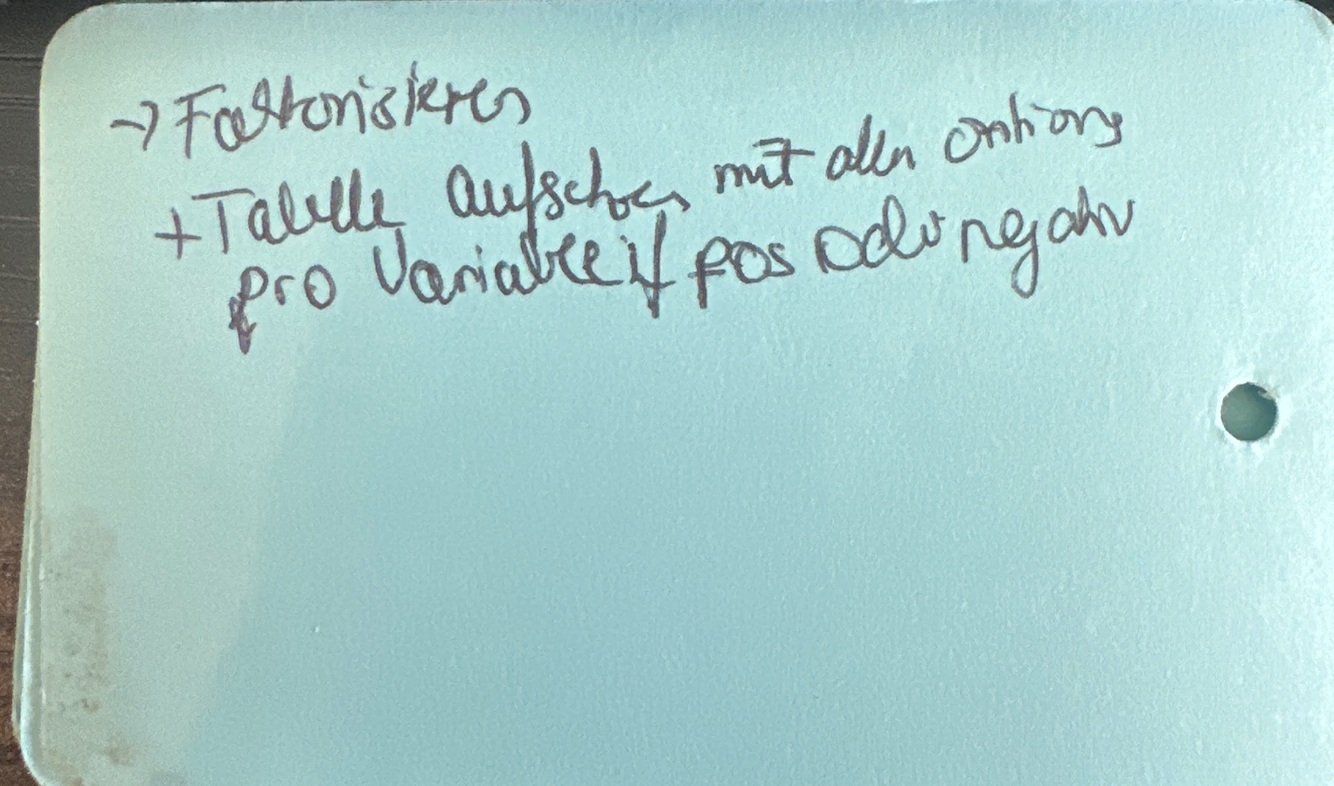 → Faktorisieren
+ Tabelle aufschr mit allen options
pro Variable if pos oder negativ